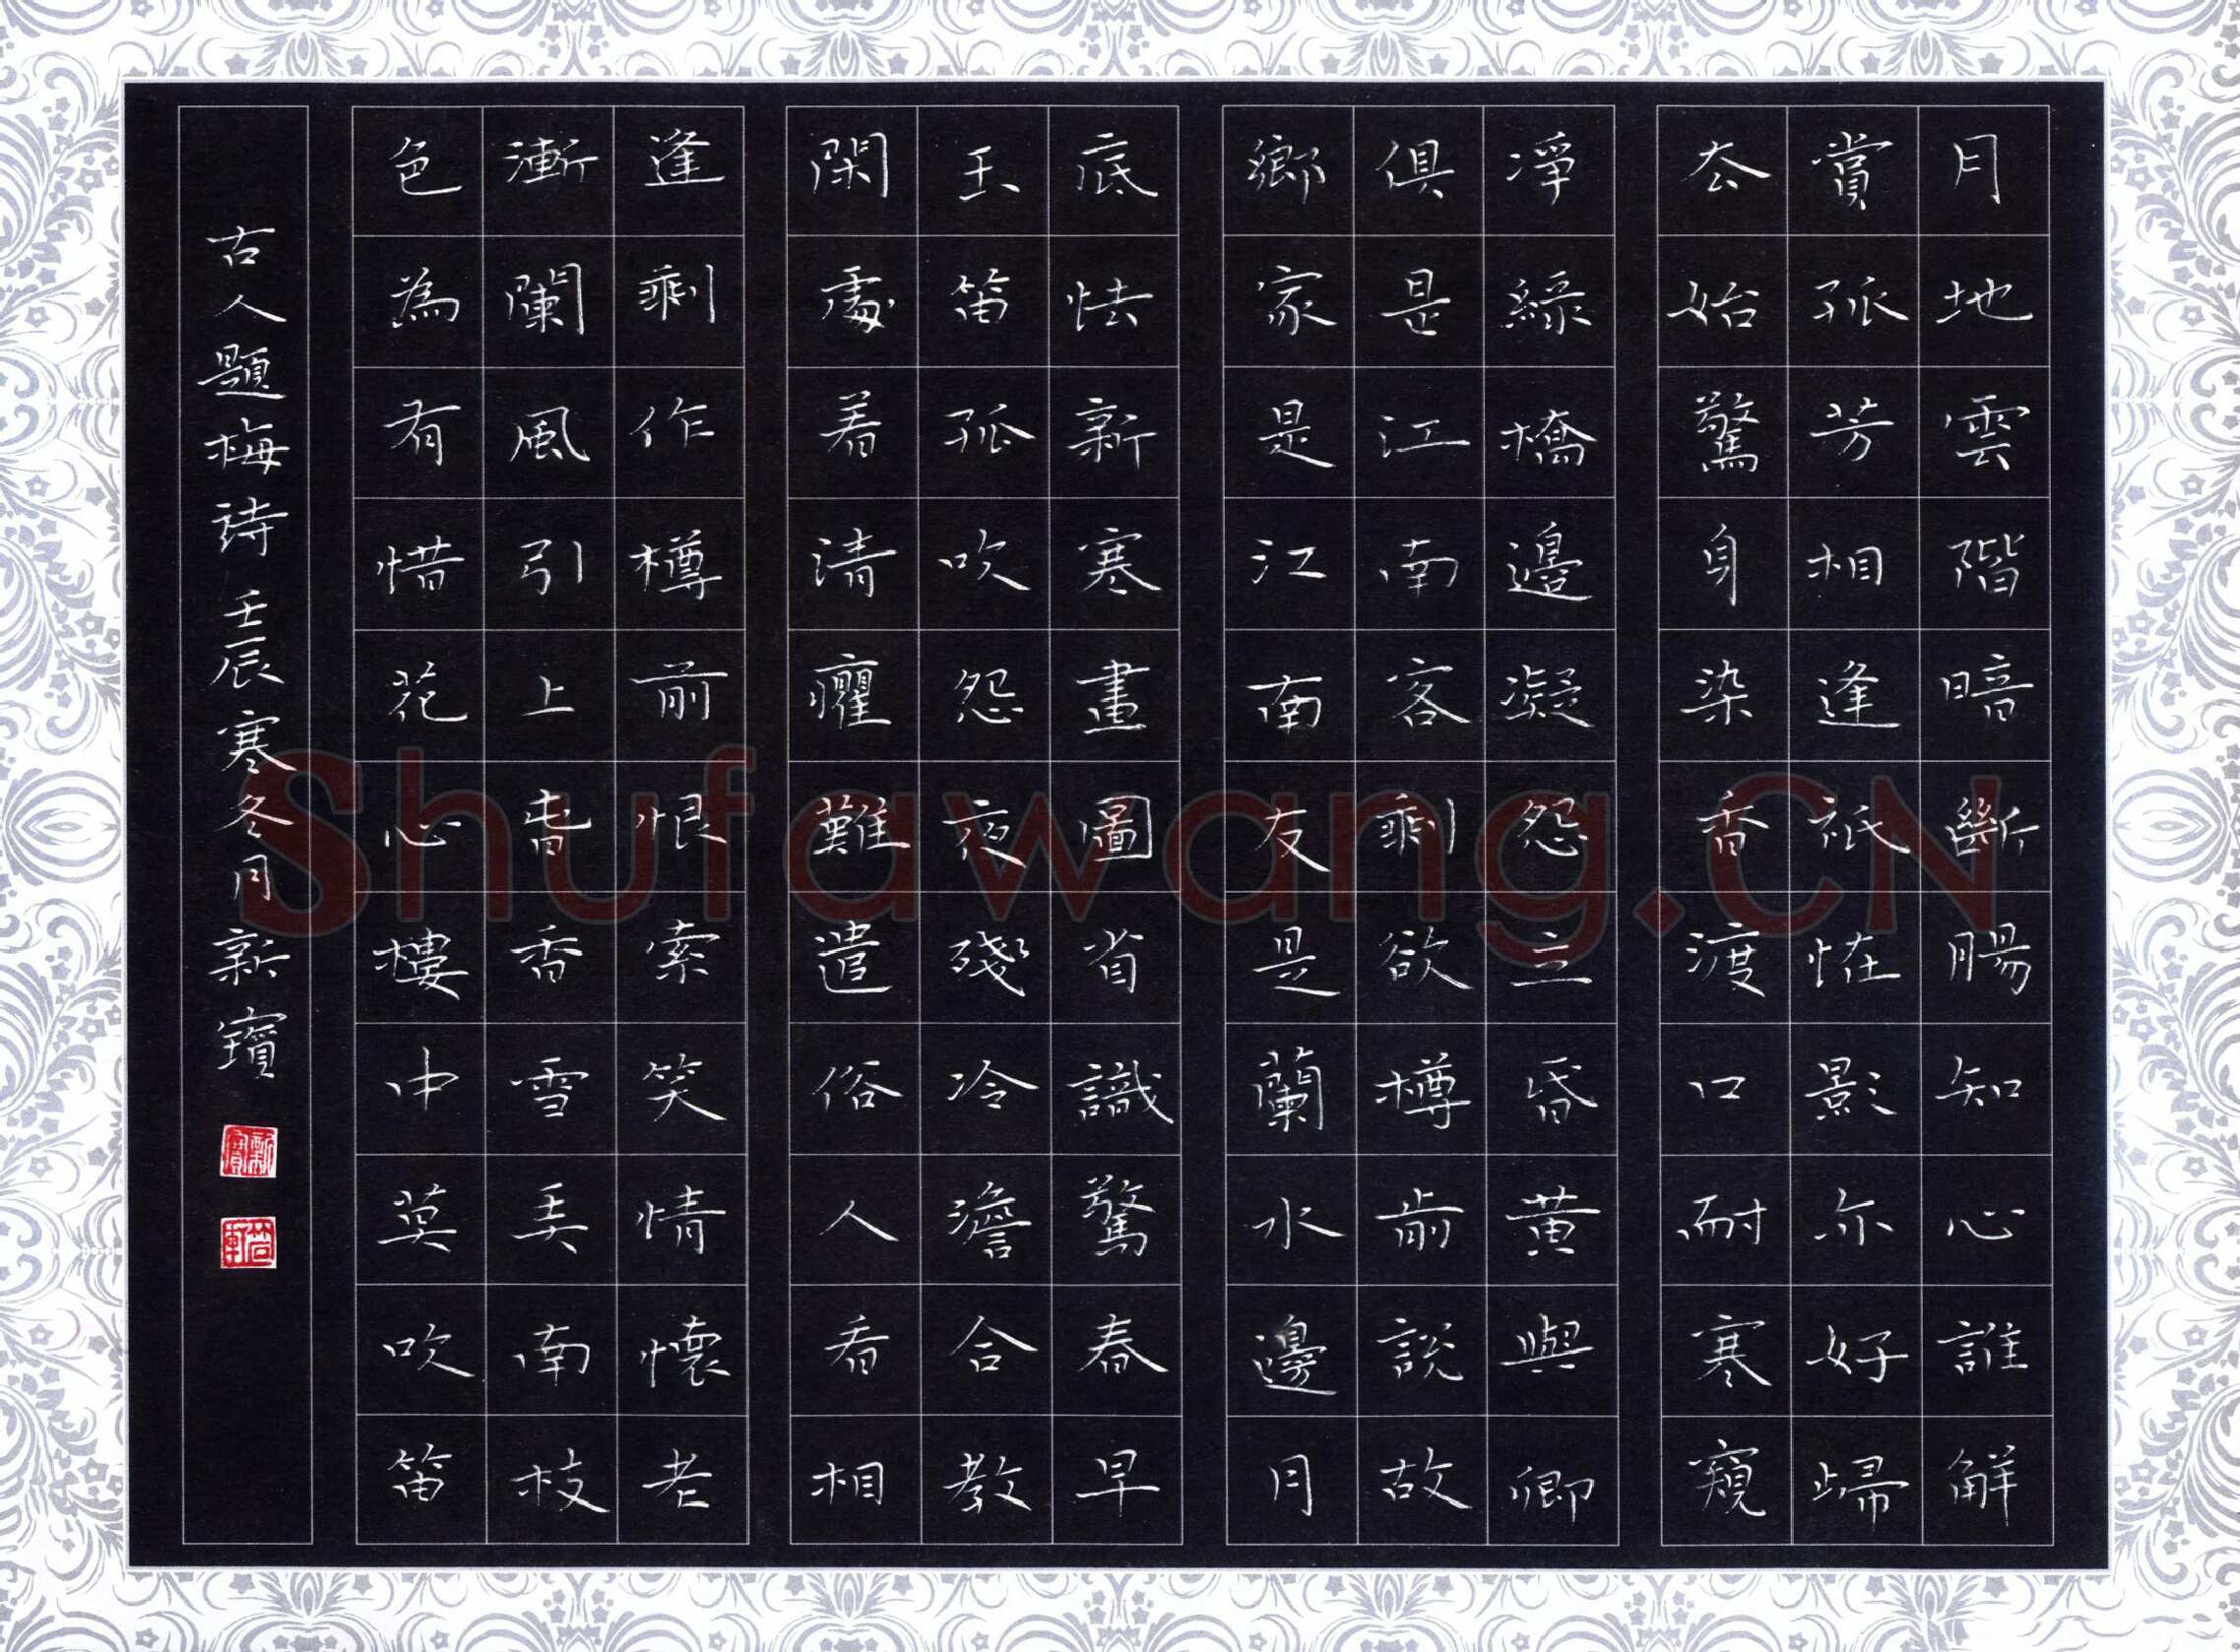 月地雲階暗斷腸知心誰解
賞孤芳相逢祇恠影亦好歸
去始驚身染香渡口耐寒窺
凈綠橋邊凝怨立昏黃與卿
俱是江南客剩欲樽前說故
鄉家是江南友是蘭水邊月
底怯新寒畫圖省識驚春早
玉笛孤吹怨夜殘冷澹合教
閑處着清癯難遣俗人看相
逢剩作樽前恨索笑情懷老
漸闌風引上旾香雪美南枝
色為有惜花心樓中莫吹笛
古人題梅詩 壬辰寒冬月新寶
新寶
Shufawang.CN